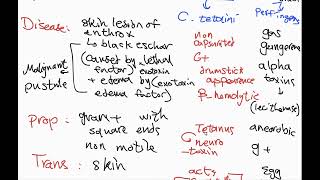 C. tetani
Perfringens
Disease: skin lesion of
anthrax
↳ black eschar
(caused by lethal
factor) exotoxin
+ edema by (exotoxin
edema factor)
Malignant
pustule
Prop: gram + with
square ends
non motile
Trans: skin
non
capsulated
G+
drumstick
appearence
β-hemolytic
Tetanus
neuro
toxin
acts
gas
gangerene
alpha
toxins
(lecithinase)
anaerobic
g+
Egg